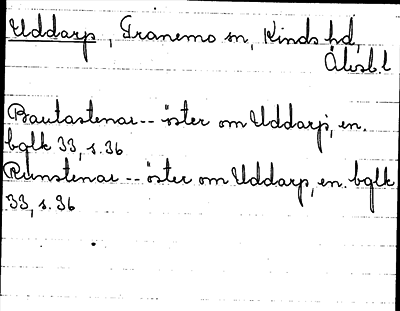 Uddarp, Tranemo sn, Kinds hd,
Älvsb.l
Bautastenar -- öster om Uddarp, en.
bglk 33, s. 36
Runstenar -- öster om Uddarp, en. bglk
33, s. 36